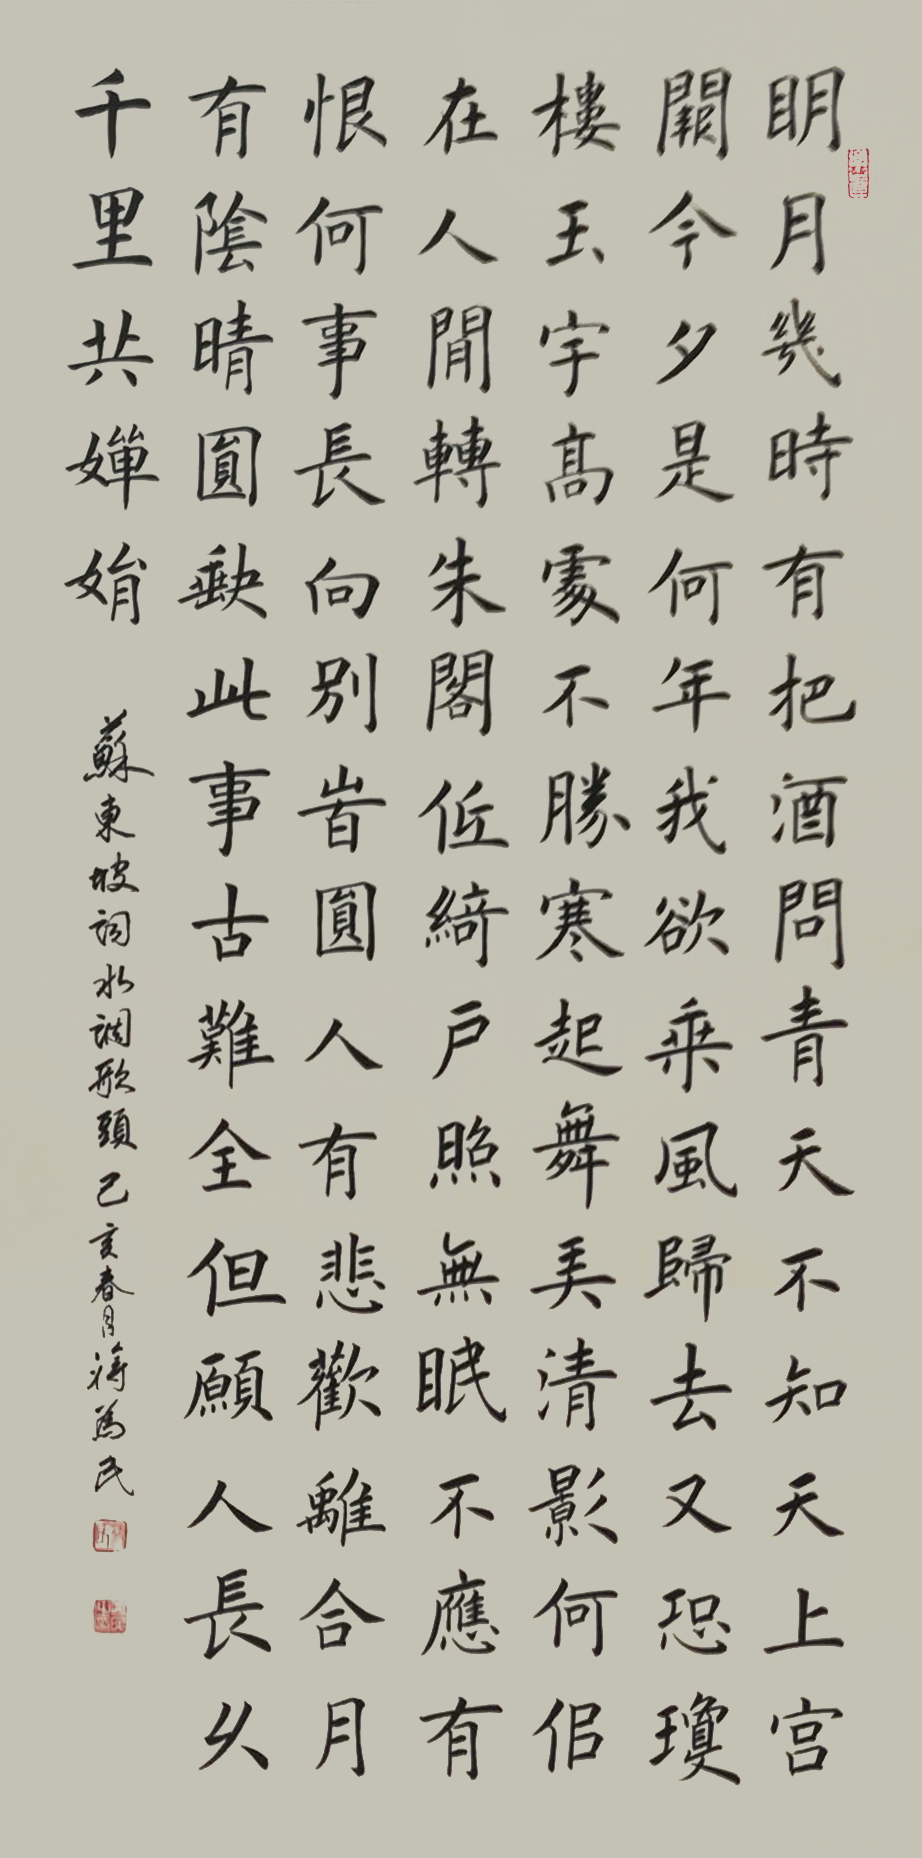 眀月幾時有把酒問青天不知天上宫
闕今夕是何年我欲乗風歸去又恐瓊
樓玉宇髙處不勝寒起舞弄清影何佀
在人閒轉朱閣低綺户照無眠不應有
恨何事長向別旹圓人有悲歡離合月
有陰晴圓缺此事古難全但願人長久
千里共嬋娟
蘇東坡詞水調歌頭己亥春月蔣為民